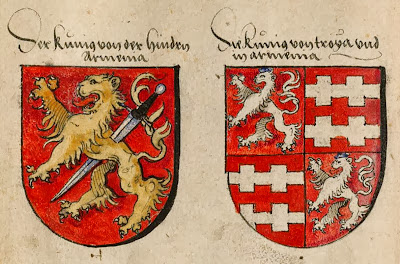 Der kunig von der hindrn
Armenia
Die kunig von troya vnd
in armenia